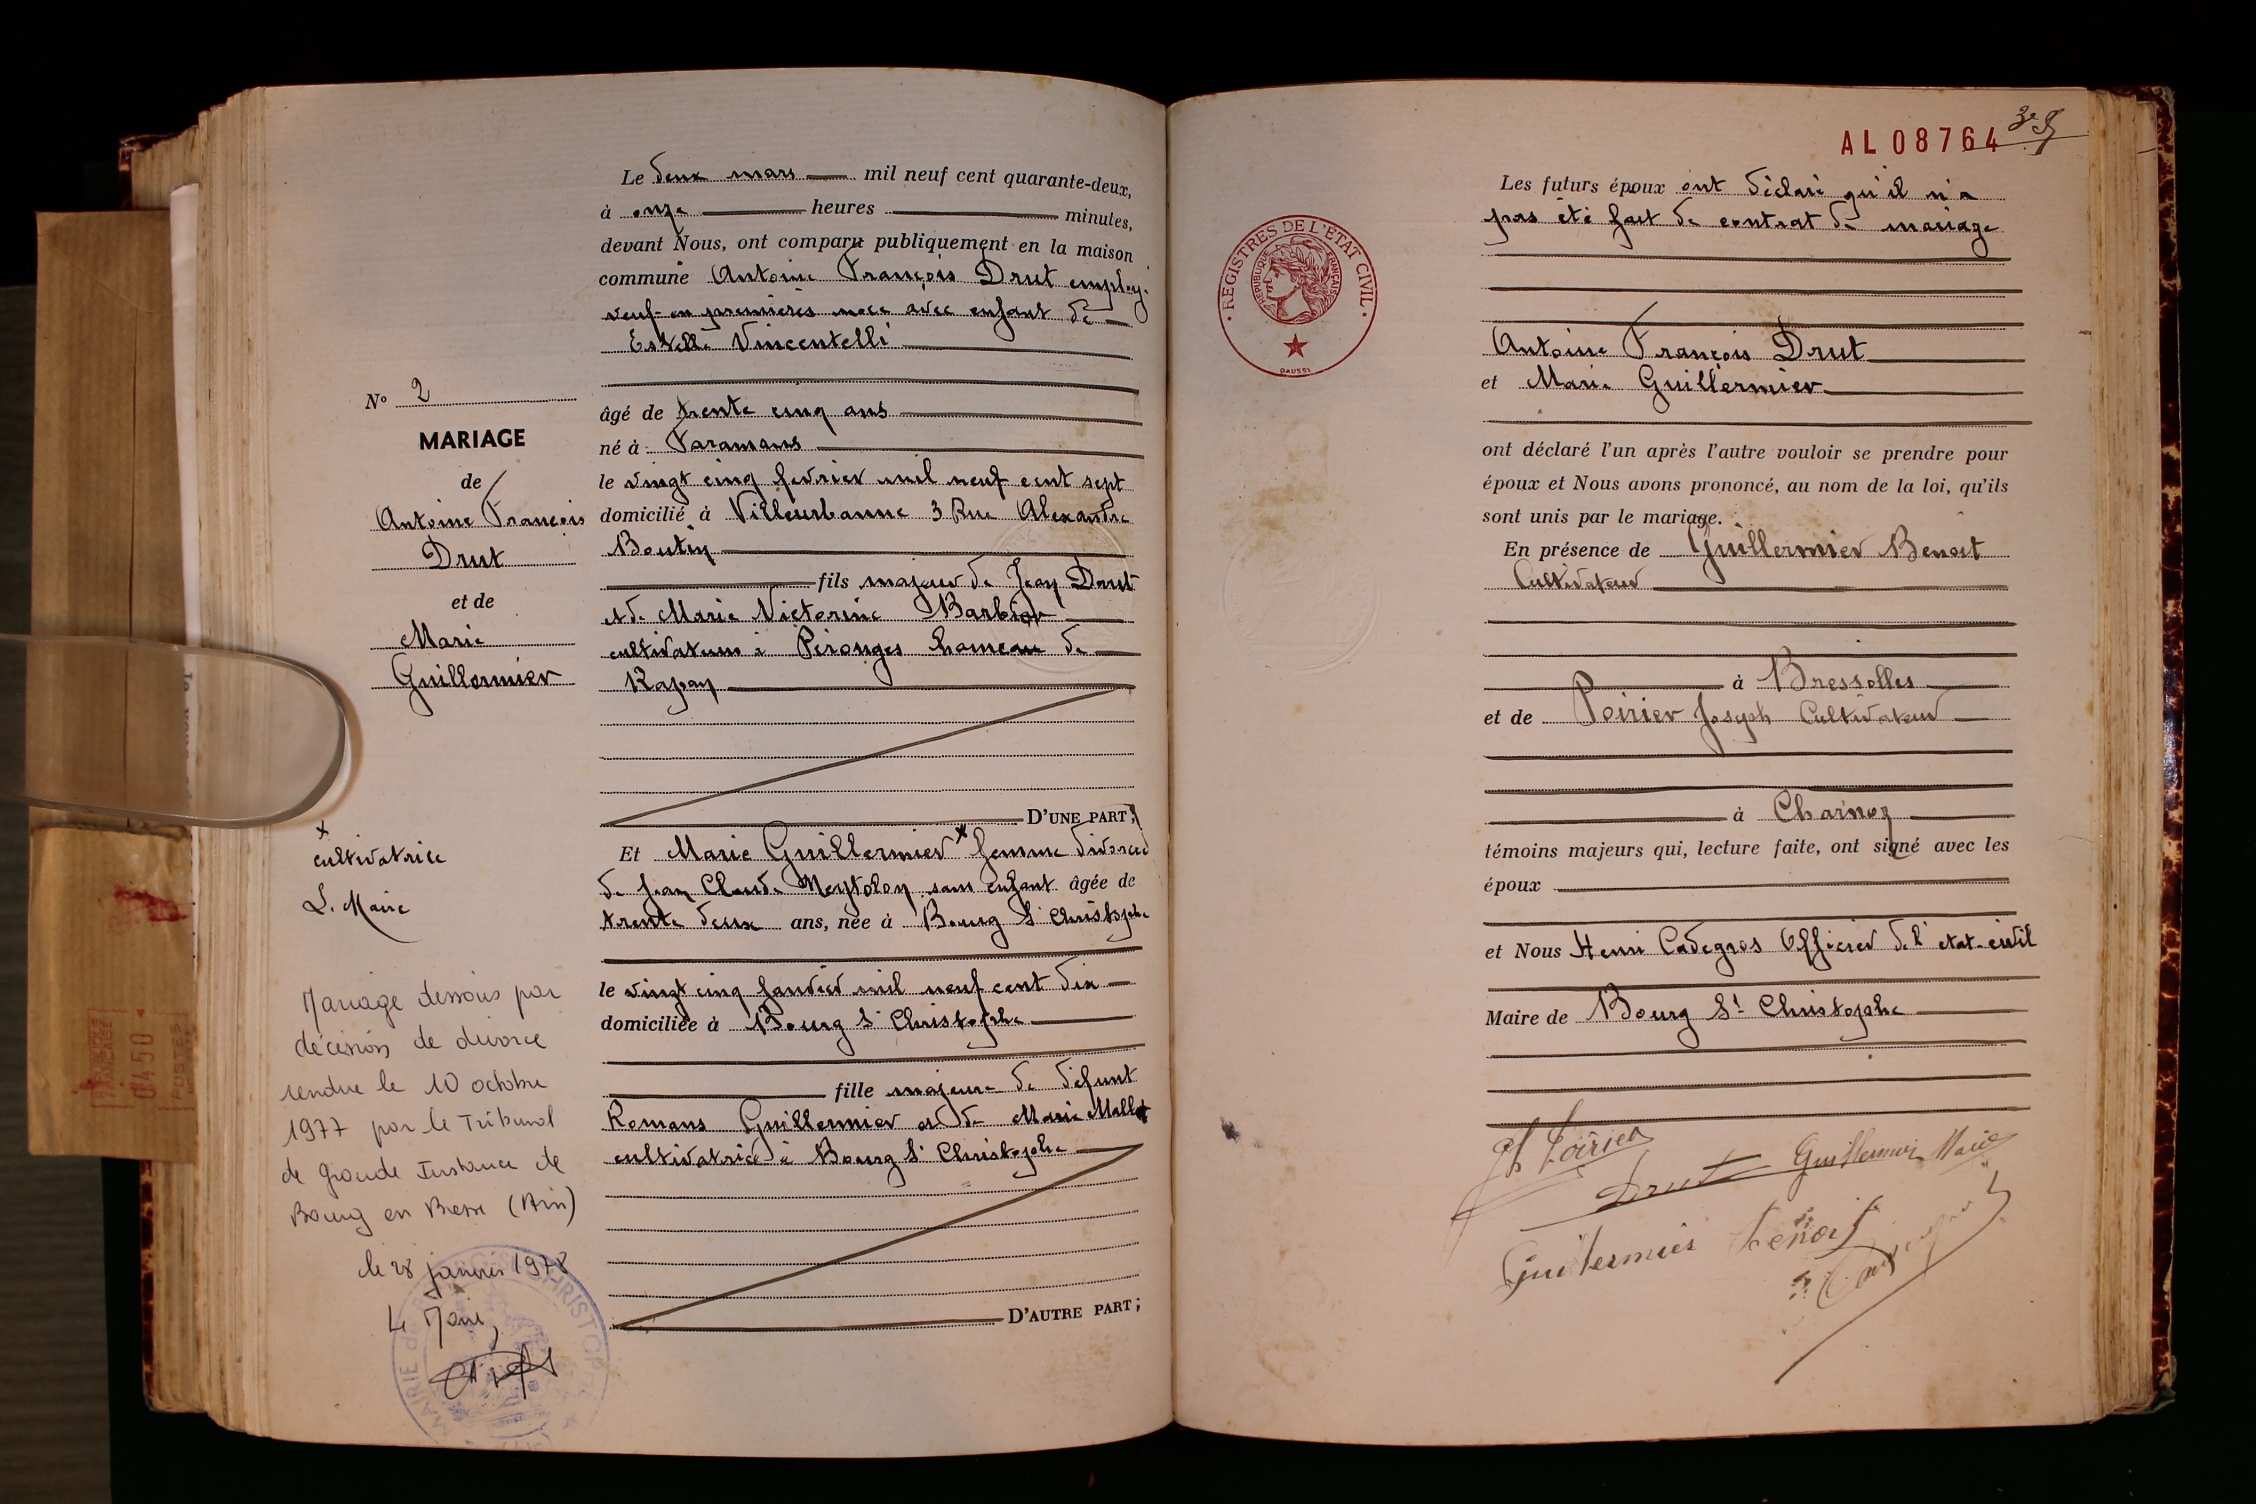 N° 2
MARIAGE
de
Antoine François
Drut
et de
Marie
Guillermier
x
cultivatrice
L. Maire
Mariage dissous par
décision de divorce
rendue le 10 octobre
1977 par le Tribunal
de grande Instance de
Bourg en Bresse (Ain)
le 28 janvier 1978
Le Maire,
MAIRIE de CHRISTOPHE
Le deux mars mil neuf cent quarante-deux,
à onze heures minutes,
devant Nous, ont comparu publiquement en la maison
commune Antoine François Drut employé
veuf en premières noce avec enfant de
Estelle Vincentelli
âgé de trente cinq ans
né à Faramans
le vingt cinq fevrier mil neuf cent sept
domicilié à Villeurbanne 3 Rue Alexandre
Boutin
fils majeur de Jean Drut
et de Marie Victorine Barbier
cultivateurs à Pérouges hameau de
Rapan
D'UNE PART;
Et Marie Guillermier x femme divorcée
de Jean Claude Meytolon sans enfant âgée de
trente deux ans, née à Bourg St Christophe
le vingt cinq janvier mil neuf cent dix
domiciliée à Bourg St Christophe
fille majeure de défunt
Romans Guillermier et de Marie Mallet
cultivatrice à Bourg St Christophe
D'AUTRE PART;
AL 08764
REGISTRES DE L'ETAT CIVIL
REPUBLIQUE FRANÇAISE
DAUSSI
Les futurs époux ont déclaré qu'il n'a
pas été fait de contrat de mariage
Antoine François Drut
et Marie Guillermier
ont déclaré l'un après l'autre vouloir se prendre pour
époux et Nous avons prononcé, au nom de la loi, qu'ils
sont unis par le mariage.
En présence de Guillermier Benoit
Cultivateur
à Bressolles
et de Poirier Joseph Cultivateur
à Charnoz
témoins majeurs qui, lecture faite, ont signé avec les
époux
et Nous Henri Cadegros Officier de l'etat-civil
Maire de Bourg St Christophe
Jh Poirier
Drut Guillermier Marie
Guillermier Benoit
0450
POSTES